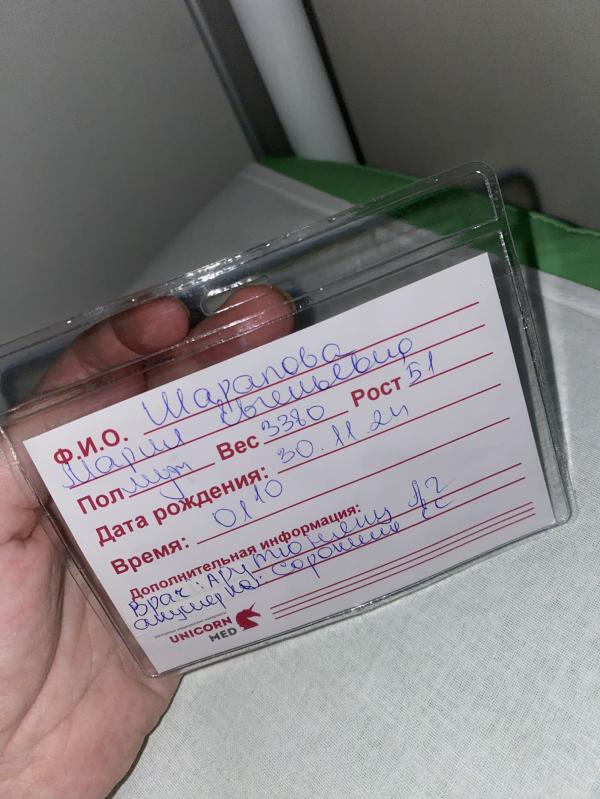 Ф.И.О. Шарапова
Мария Евгеньевна
Пол муж Вес 3380 Рост 51
Дата рождения: 30.11.24
Время: 01 10
Дополнительная информация:
Врач: Арутюнянц
акушерка: Сорокина
UNICORN
MED